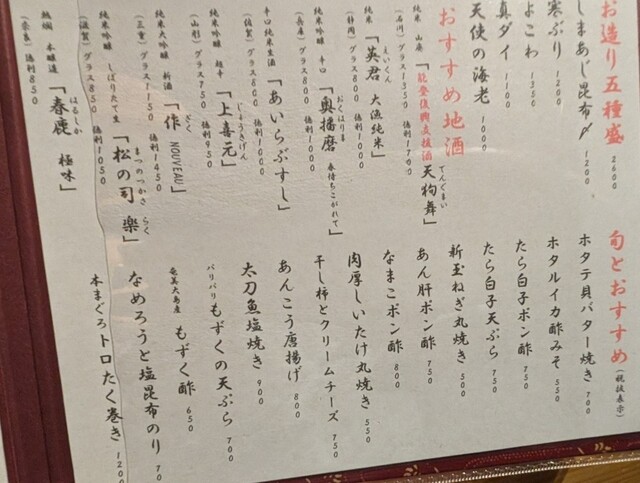 お造り五種盛 2600
しまあじ昆布〆 1200
寒ぶり 1200
よこわ 1350
真ダイ 1100
天使の海老 1000
おすすめ地酒
純米 山廃 「能登復興支援酒 天狗舞」 てんぐまい
(石川) グラス1350 徳利1700
純米 「英君 大漁純米」 えいくん
(静岡) グラス800 徳利1000
純米吟醸 辛口 「奥播磨 春待ちこがれて」 おくはりま
(兵庫) グラス800 徳利1000
辛口純米生酒 「あいらぶすし」
(佐賀) グラス800 徳利1000
純米吟醸 超辛 「上喜元」 じょうきげん
(山形) グラス750 徳利950
純米大吟醸 新酒 「作 NOUVEAU」 ざく
(三重) グラス1150 徳利1450
純米吟醸 しぼりたて生 「松の司 楽」 まつのつかさ らく
(滋賀) グラス850 徳利1050
熱燗 本醸造 「春鹿 極味」 はるしか
(奈良) 徳利850
旬とおすすめ (税抜表示)
ホタテ貝バター焼き 700
ホタルイカ酢みそ 550
たら白子ポン酢 750
たら白子天ぷら 750
新玉ねぎ丸焼き 500
あん肝ポン酢 750
なまこポン酢 800
肉厚しいたけ丸焼き 550
干し柿とクリームチーズ 750
あんこう唐揚げ 800
太刀魚塩焼き 900
パリパリもずくの天ぷら 700
奄美大島産 もずく酢 650
なめろうと塩昆布のり 70
本まぐろトロたく巻き 1200